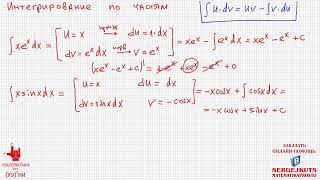 Интегрирование по частям
∫u·dv = uv − ∫v·du
∫xeˣdx = [u = x du = 1·dx dv = eˣdx v = eˣ] = xeˣ − ∫eˣdx = xeˣ − eˣ + c
(xeˣ − eˣ + c)' = eˣ + xeˣ − eˣ + 0
∫x sinx dx = [u = x du = dx dv = sinxdx v = −cosx] = −xcosx + ∫cosxdx =
= −xcosx + sinx + c
МАТЕМАТИКА
ЗАКАЗАТЬ
ОНЛАЙН-ПОМОЩЬ:
SERGEJKUTS
МАТЕМАТИКАПРОСТО